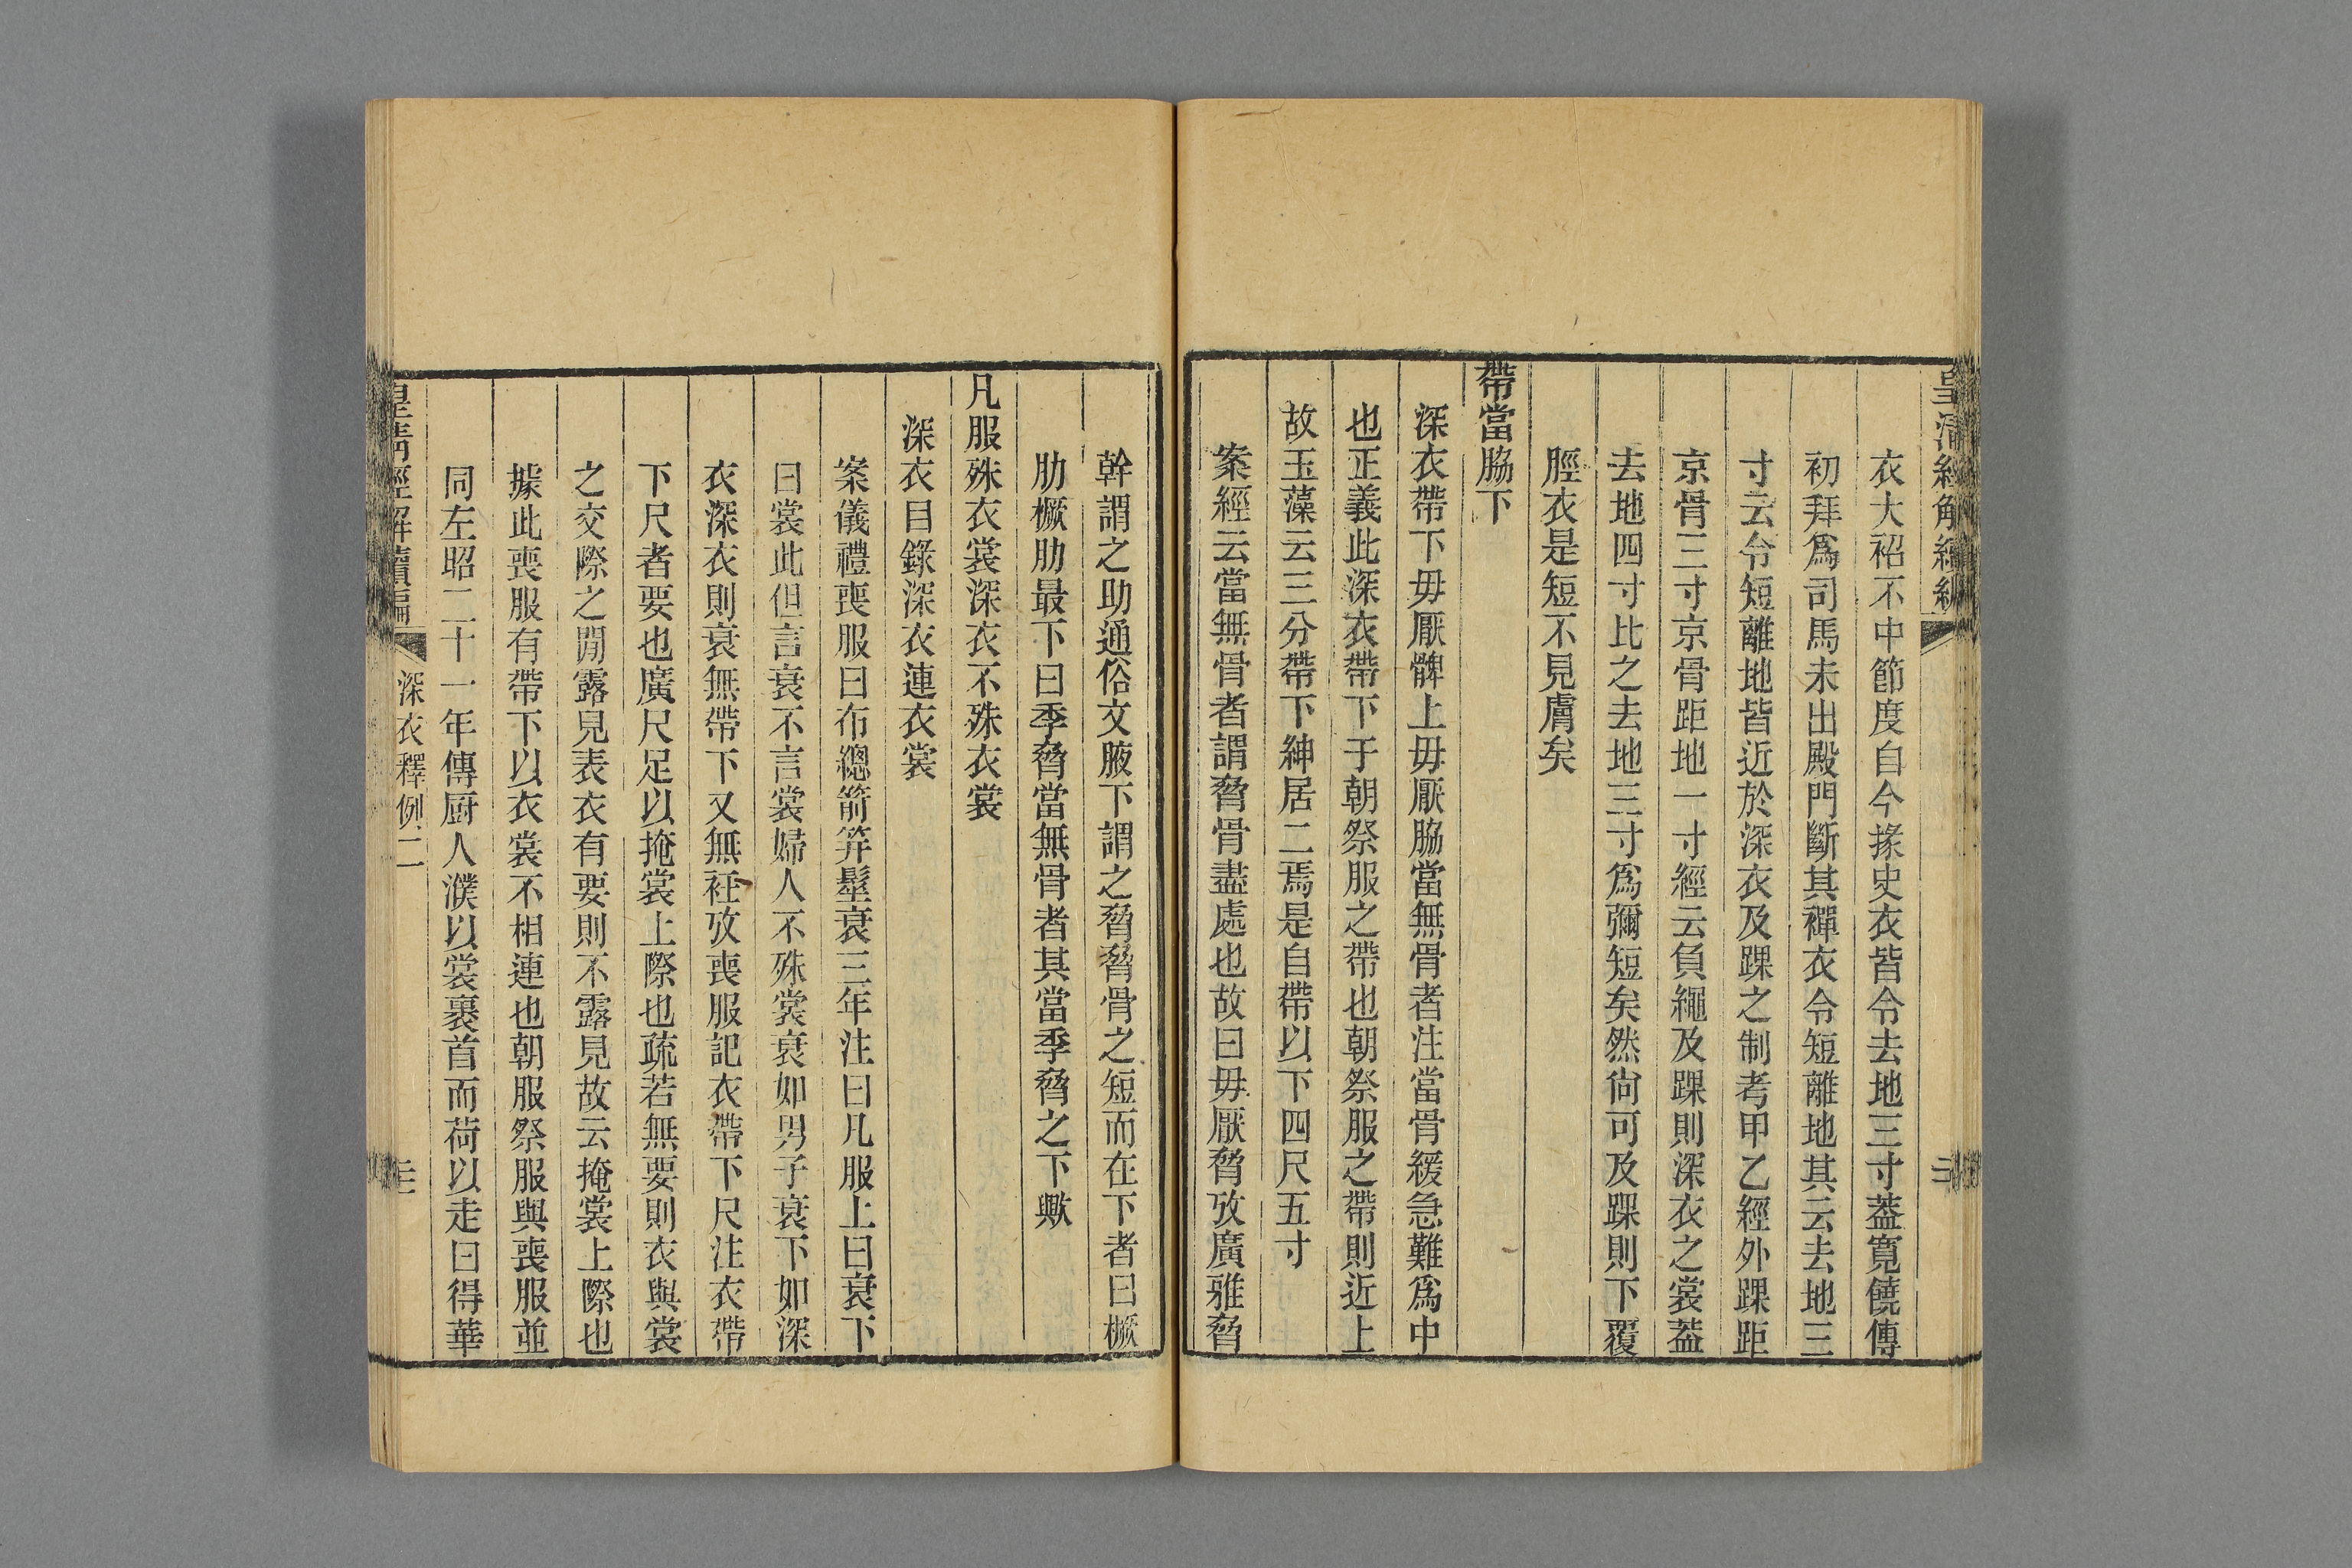 衣大袑不中節度自今掾史衣皆令去地三寸葢寬饒傳
初拜爲司馬未出殿門斷其襌衣令短離地其云去地三
寸云令短離地皆近於深衣及踝之制考甲乙經外踝距
京骨三寸京骨距地一寸經云負繩及踝則深衣之裳葢
去地四寸比之去地三寸爲彌短矣然尙可及踝則下覆
脛衣是短不見膚矣
帶當脇下
深衣帶下毋厭髀上毋厭脇當無骨者注當骨緩急難爲中
也正義此深衣帶下于朝祭服之帶也朝祭服之帶則近上
故玉藻云三分帶下紳居二焉是自帶以下四尺五寸
案經云當無骨者謂脅骨盡處也故曰毋厭脅攷廣雅脅
幹謂之肋通俗文腋下謂之脅脅骨之短而在下者曰橛
肋橛肋最下曰季脅當無骨者其當季脅之下歟
凡服殊衣裳深衣不殊衣裳
深衣目錄深衣連衣裳
案儀禮喪服曰布總箭笄髽衰三年注曰凡服上曰衰下
曰裳此但言衰不言裳婦人不殊裳衰如男子衰下如深
衣深衣則衰無帶下又無衽攷喪服記衣帶下尺注衣帶
下尺者要也廣尺足以掩裳上際也疏若無要則衣與裳
之交際之閒露見表衣有要則不露見故云掩裳上際也
據此喪服有帶下以衣裳不相連也朝服祭服與喪服並
同左昭二十一年傳厨人濮以裳裹首而荷以走曰得華
皇淸經解續編
深衣釋例二